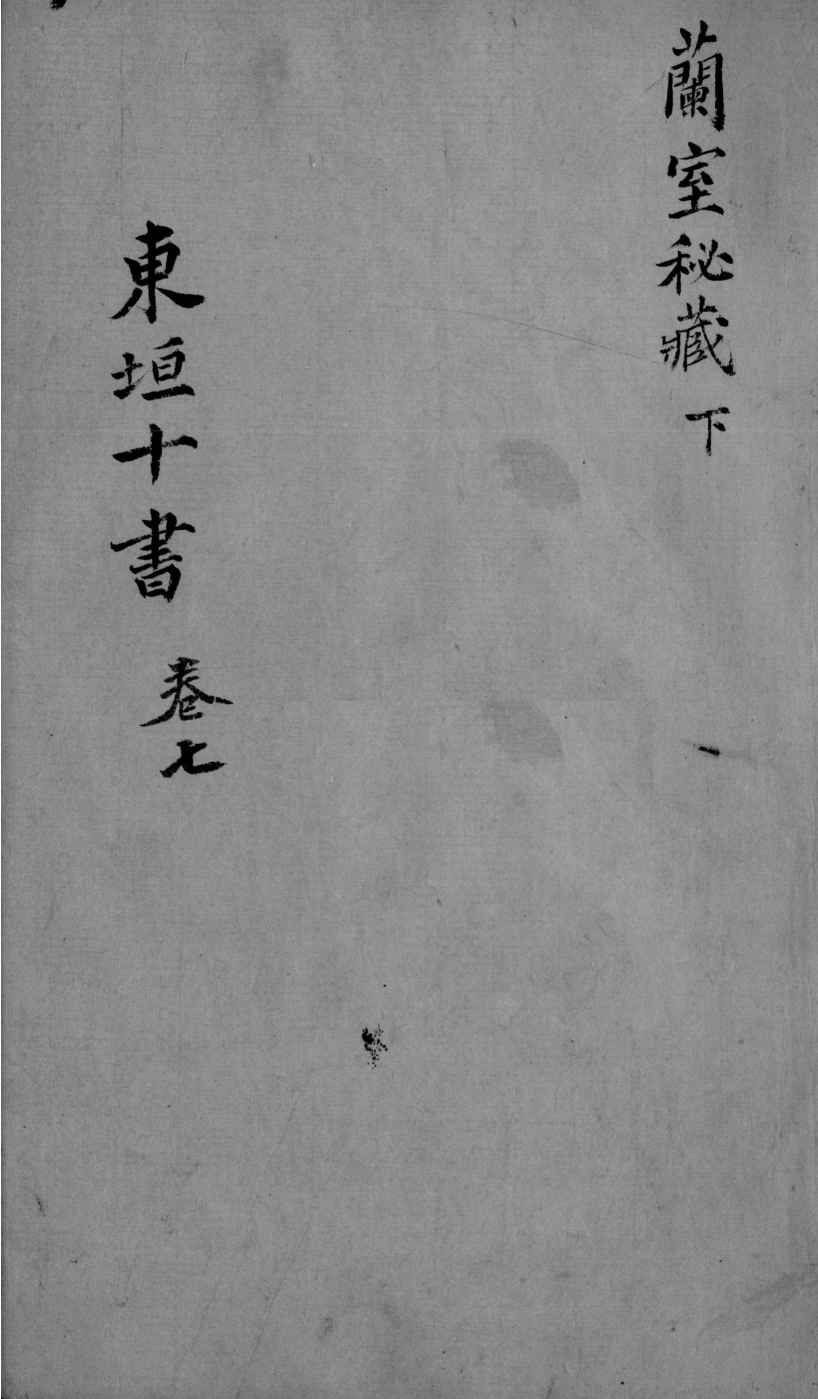 蘭室秘藏 下
東垣十書 卷七